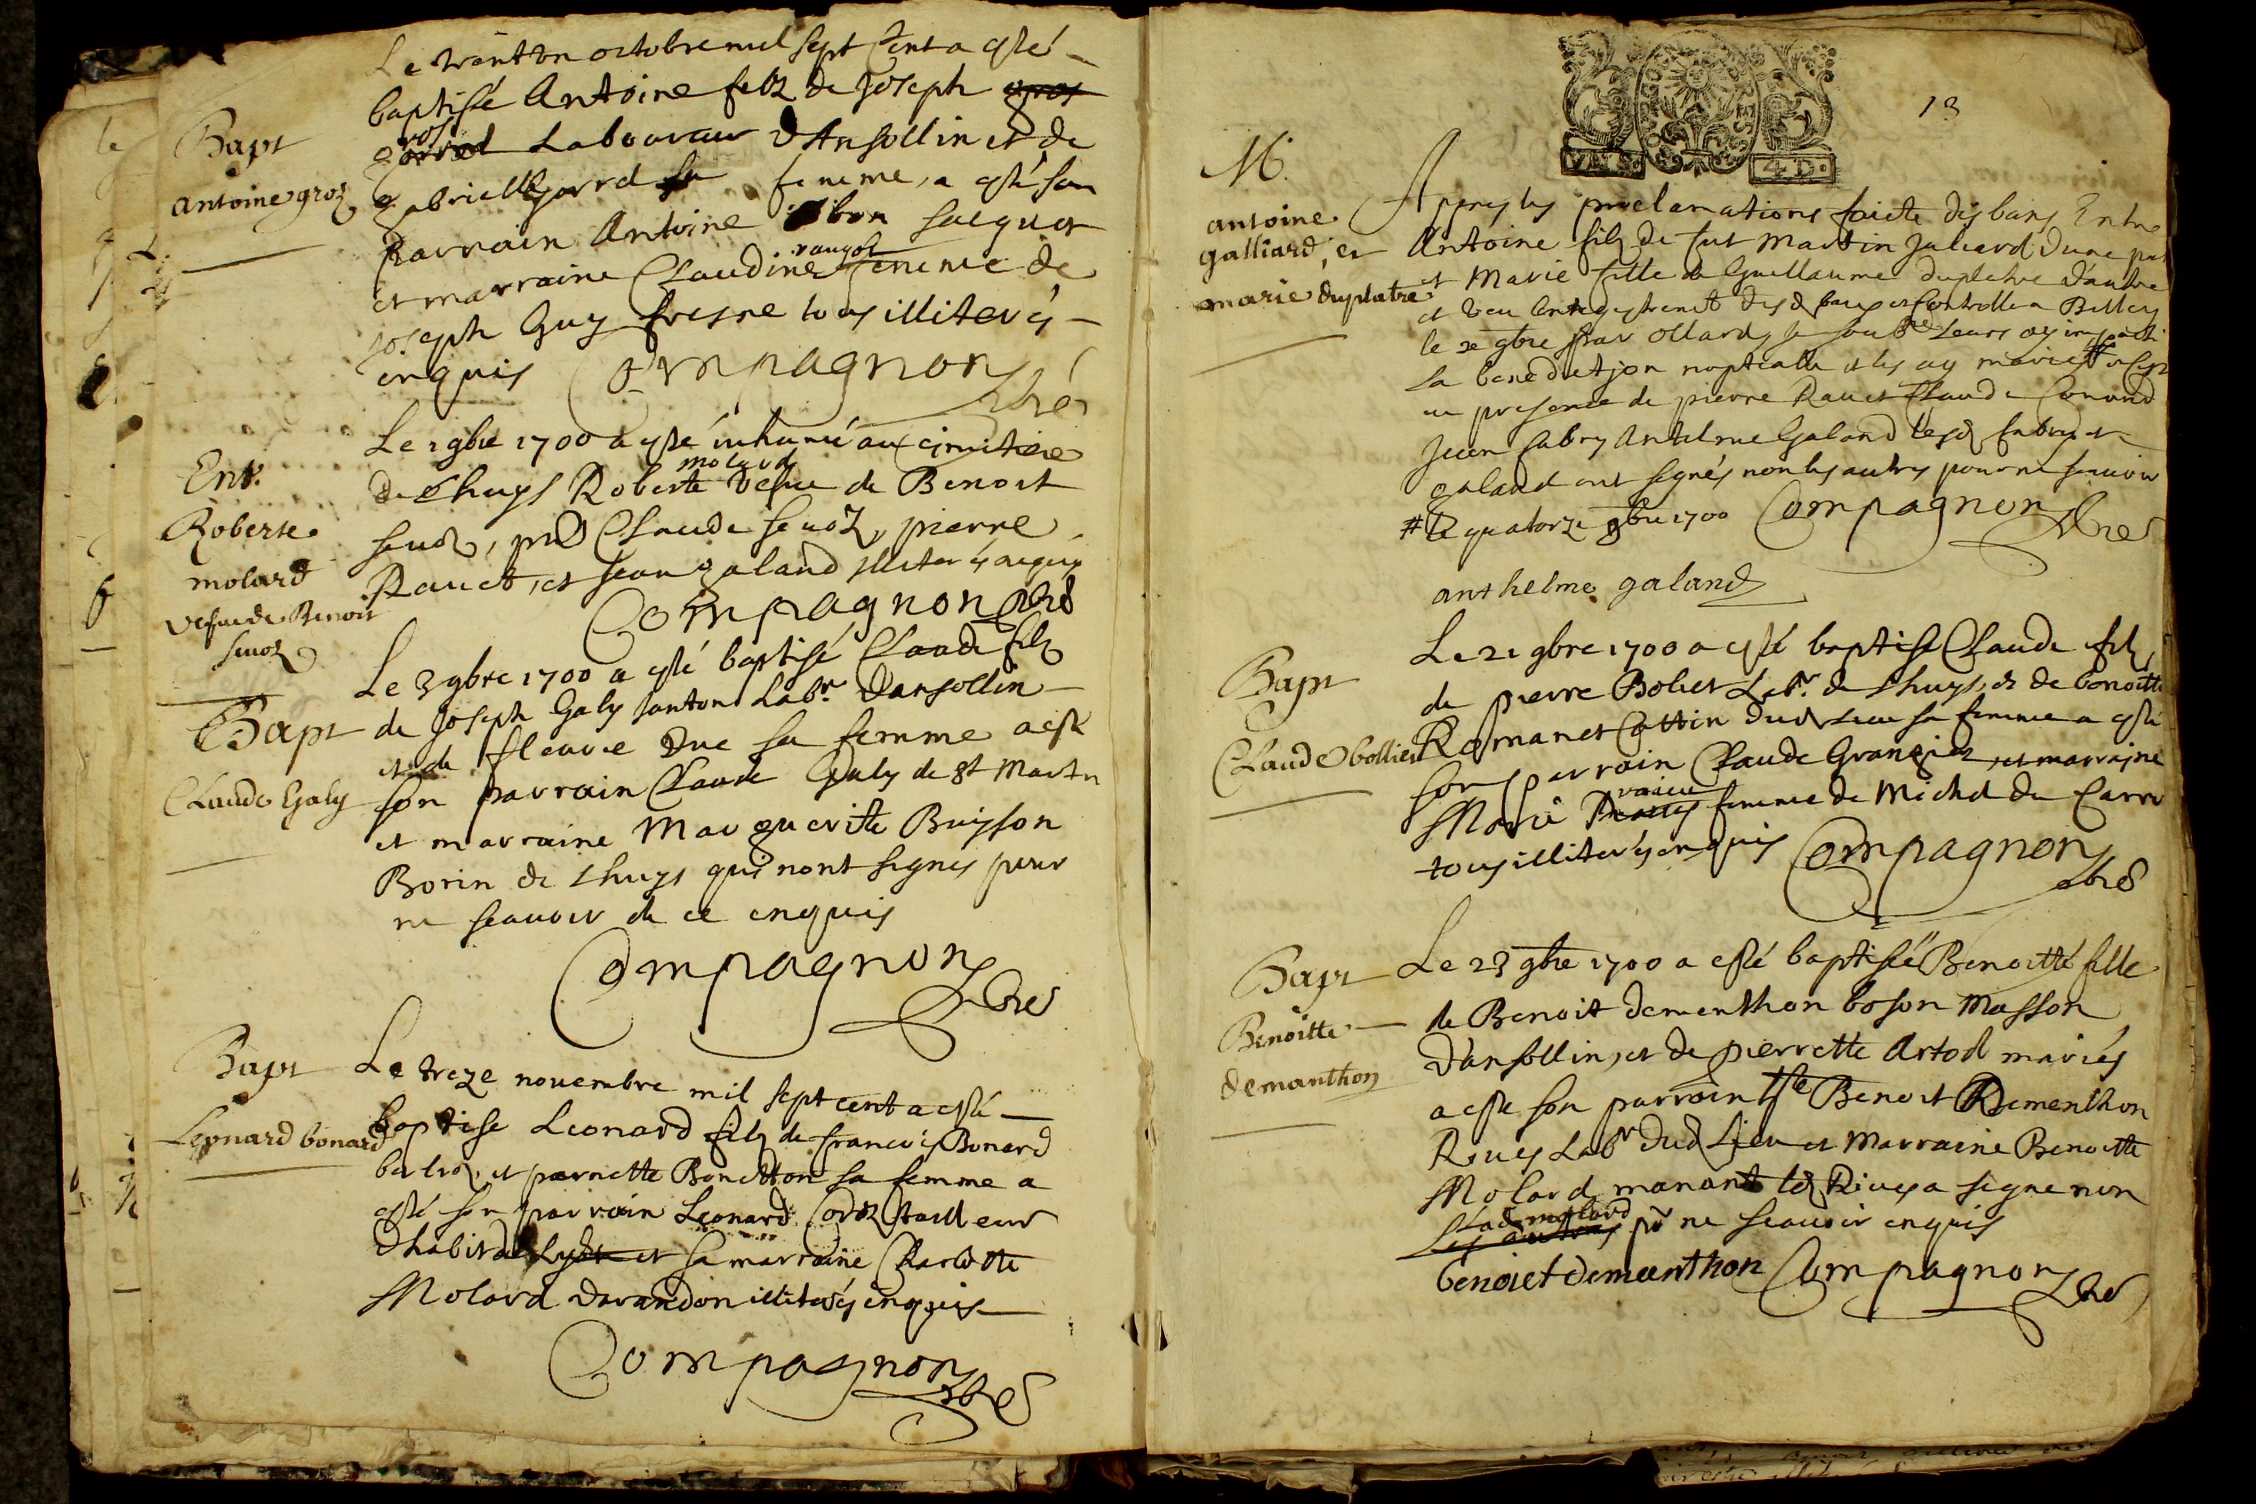 Le trent un octobre mil sept cent a esté
baptisé Antoine filz de Joseph gros
ros
Laboureur d'Ansollin et de
Bapt
antoine groz
gabrielle gorrel sa femme, a esté son
Parrain Antoine bon Jacquet
rangot
et marraine Claudine femme de
joseph Guy fresne tous illiterés
enquis Compagnon pbre
Le 2 9bre 1700 a esté inhumé au cimitiere
molard
de Lhuys Roberte vefue de Benoit
Ent.
Roberte
molard
vefue de Benoit
seuoz
seuoz, Claude seuoz, pierre
Rauet, et Jean galand illiterés enquis
Compagnon pbre
Le 3 9bre 1700 a esté baptisé Claude filz
de Joseph Galy santon Labr. d'ansollin
Bapt
Claude Galy
et de fleurie Duc sa femme a esté
son parrain Claude Galy de St Martin
et marraine Marguerite Buysson
Borin de Lhuys qui n'ont signés pour
ne scauoir de ce enquis
Compagnon pbre
Bapt
Leonard bonard
Le treze nouembre mil sept cent a esté
baptise Leonard filz de francois Bonard
et pernette Bonetton sa femme a
esté son parrain Leonard Cordz tailleur
d'habits et sa marraine Charlotte
Molard d'arandon illiterés enquis
Compagnon pbre
13
4 D.
M.
antoine
galliard, et
marie duplatre
Apres les proclamations faicte des bans Entre
Antoine filz de fut Martin Juliard d'une part
et Marie fille de Guillaume duplatre d'autre
et veu l'enregistremt desd bans et Controlle a Belley
le 2e 9bre par ollard, je soubne leurs ay imparti
la benediction nuptialle et les ay mariés #
en presence de pierre Rauet Claude Conand
Jean fabry Antelme Galand lesd fabry et
galand ont signés non les autres pour ne scauoir
# le quatorze 9bre 1700 Compagnon pbre
anthelme galand
Le 21 9bre 1700 a esté baptisé Claude filz
de pierre Bolliet Labr. de Lhuys, et de benoitte
Bapt
Claude bolliet
Romanet Cottin dud Lieu sa femme a esté
son parrain Claude Grangier, et marraine
Marie femme de Michel du Carre
tous illiterés enquis Compagnon pbre
Le 23 9bre 1700 a esté baptisée Benoitte fille
Bapt
Benoitte
demanthon
de Benoit dementhon boson Masson
d'ansollin, et de pierrette Artod mariés
a esté son parrain Benoit Dementhon
Riues Labr dud Lieu et Marraine Benoitte
Molard manant led Riues a signe non
Lad molard
Les autres pr ne scauoir enquis
benoiet demanthon Compagnon pbre